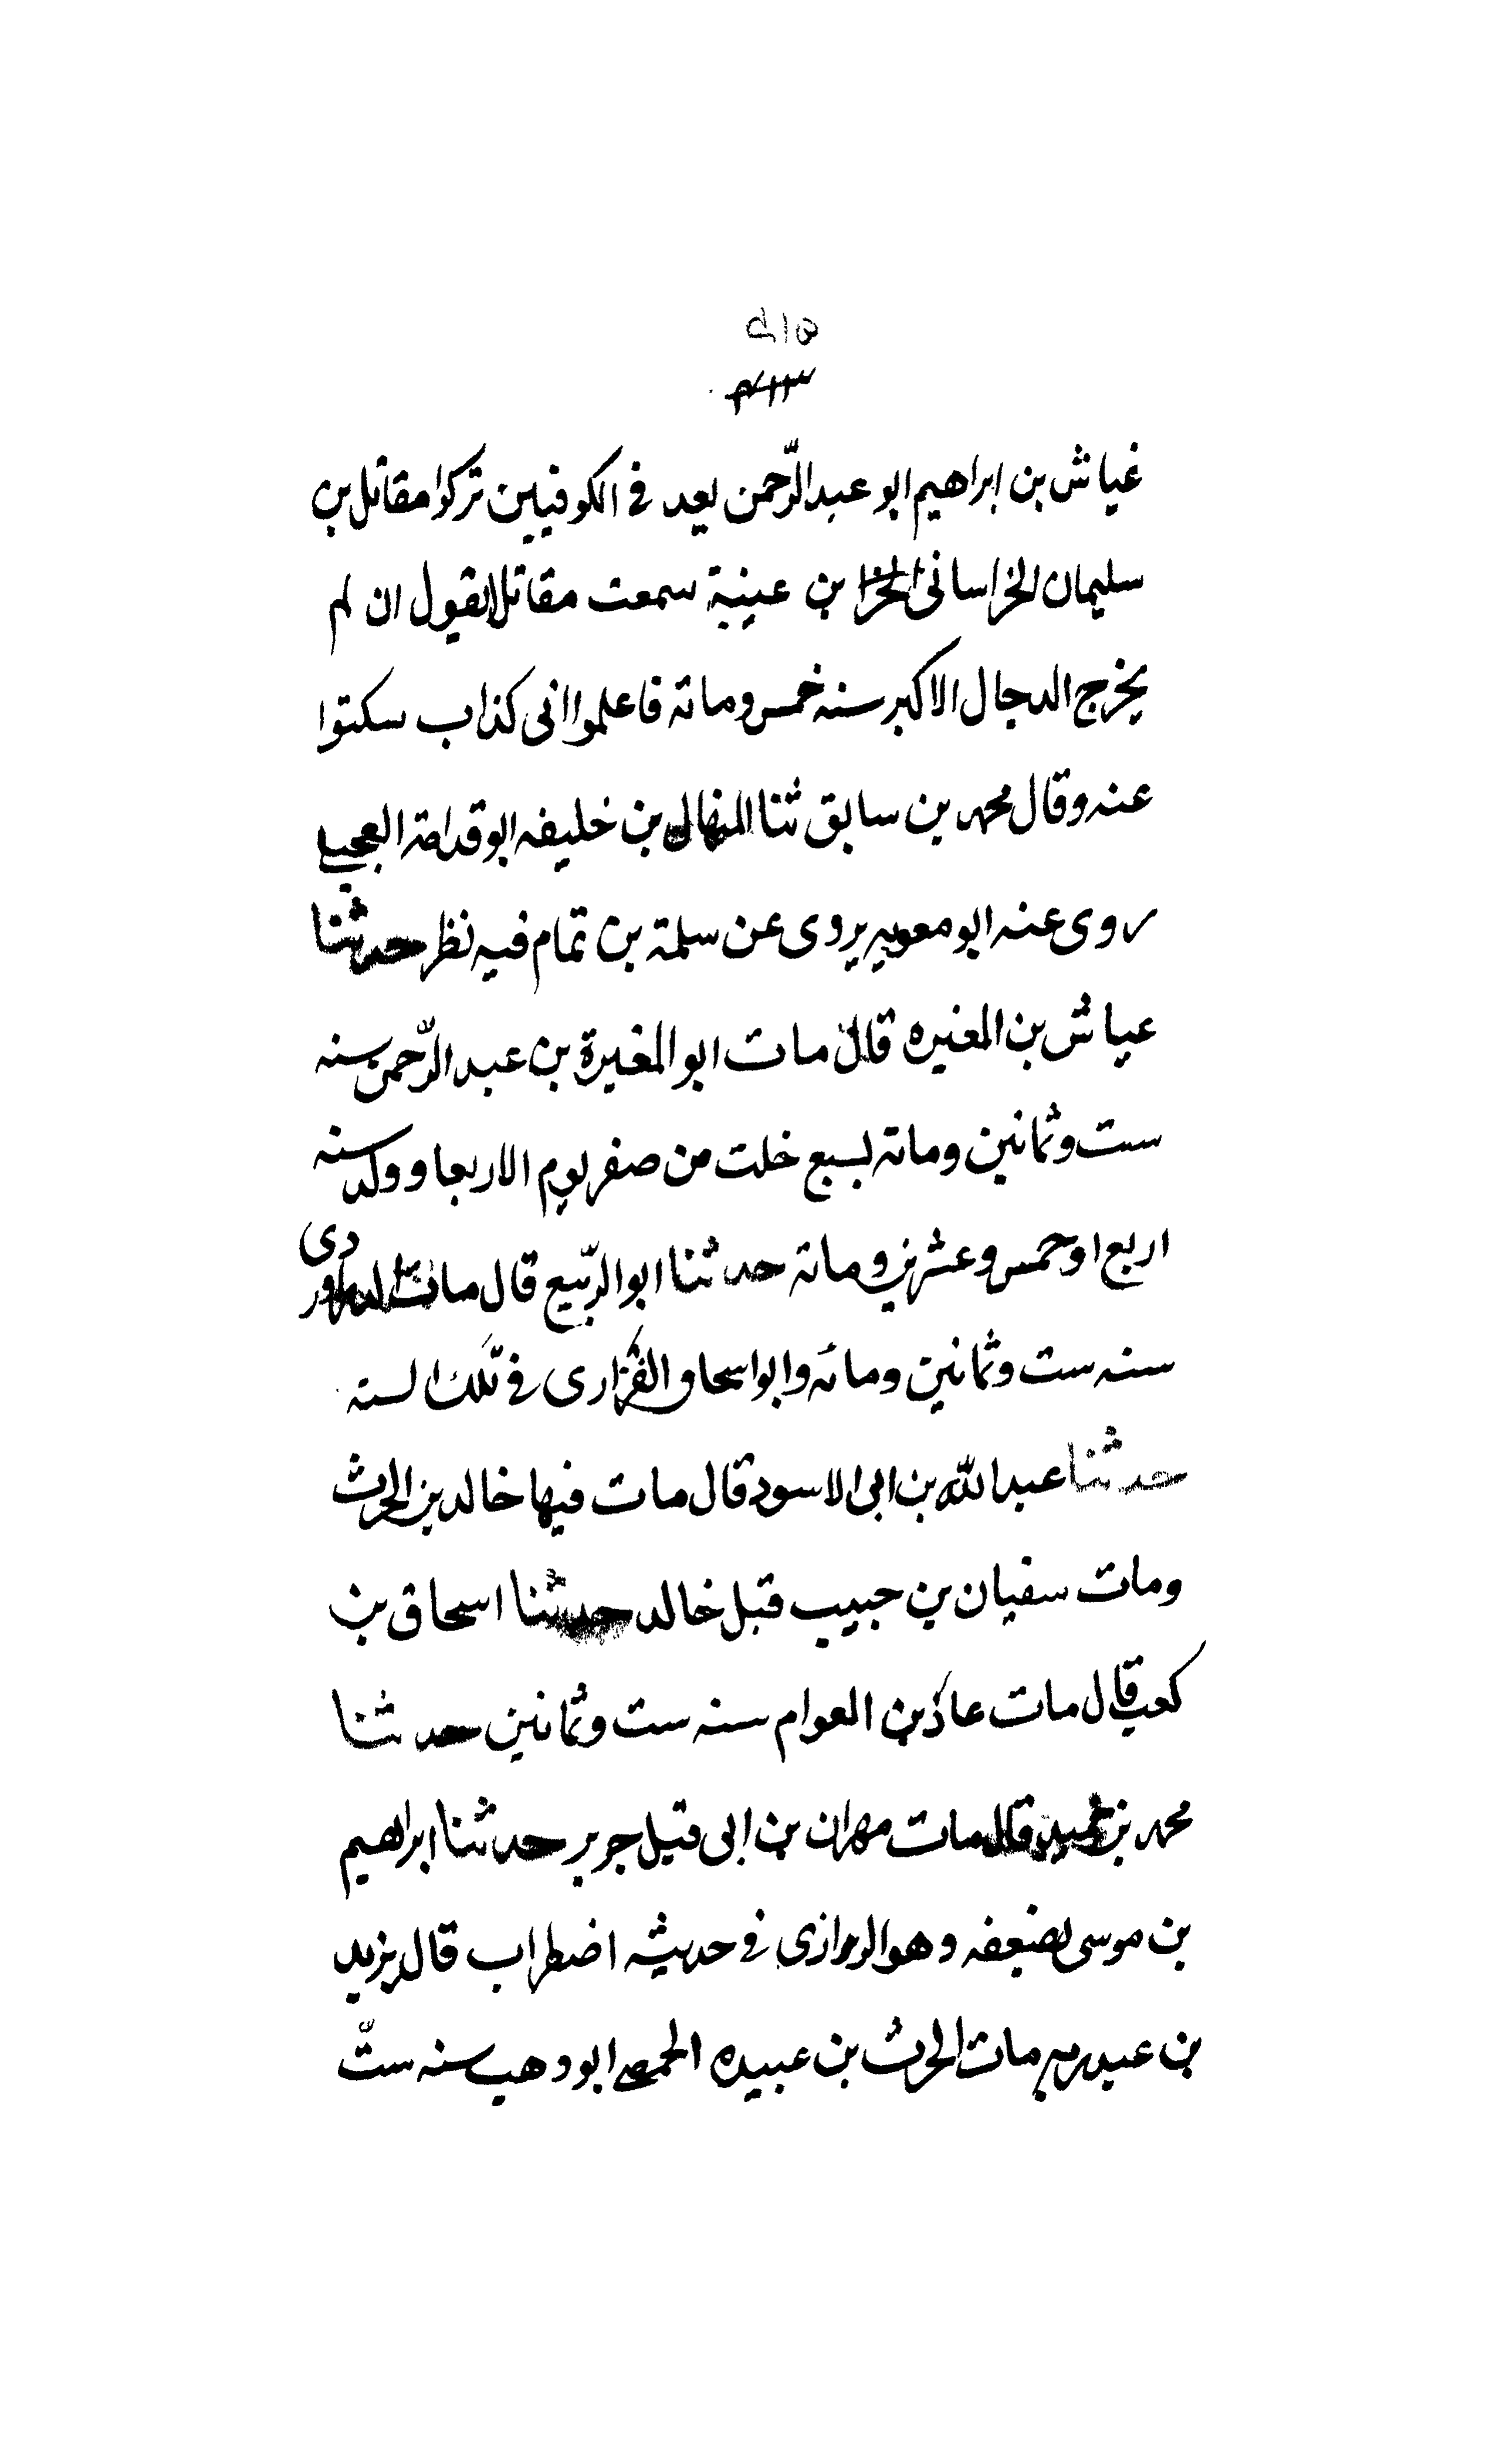 غياش بن ابراهيم ابو عبد الرّحمن يعد فى الكوفيين تركوا مقاتل بن
سليمان الخراسانى بن عيينة سمعت مقاتلا يقول ان لم
يخرج الدجال الاكبر سنه خمس ومائة فاعلموا انى كذاب سكتوا
عنه وقال محمد بن سابق ثنا المنهال بن خليفه ابو قدامة العجلى
روى عنه ابو معويه يروى عن سلمة بن تمام فيه نظر حدثنا
عياش بن المغيره قال مات ابو المغيرة بن عبد الرّحمن سنه
ست وثمانين ومائة لسبع خلت من صفر يوم الاربعا وولد سنه
اربع او خمس وعشرين ومائة حدثنا ابو الرّبيع قال مات
سنه ست وثمانين ومائه وابو اسحاق الفزارى فى تلك السنة
حدثنا عبد الله بن ابى الاسود قال مات فيها خالد بن الحرث
ومات سفيان بن حبيب قبل خالد حدثنا اسحاق بن
كعب قال مات عاذ بن العوام سنه ست وثمانين حدثنا
محمد بن حميد قال مات مهران بن ابى قبل جرير حدثنا ابراهيم
بن موسى يضعفه وهو الرازى فى حديثه اضطراب قال يزيد
بن عبد ربه مات الحرث بن عبيده الحمصى ابو وهب سنه ستّ